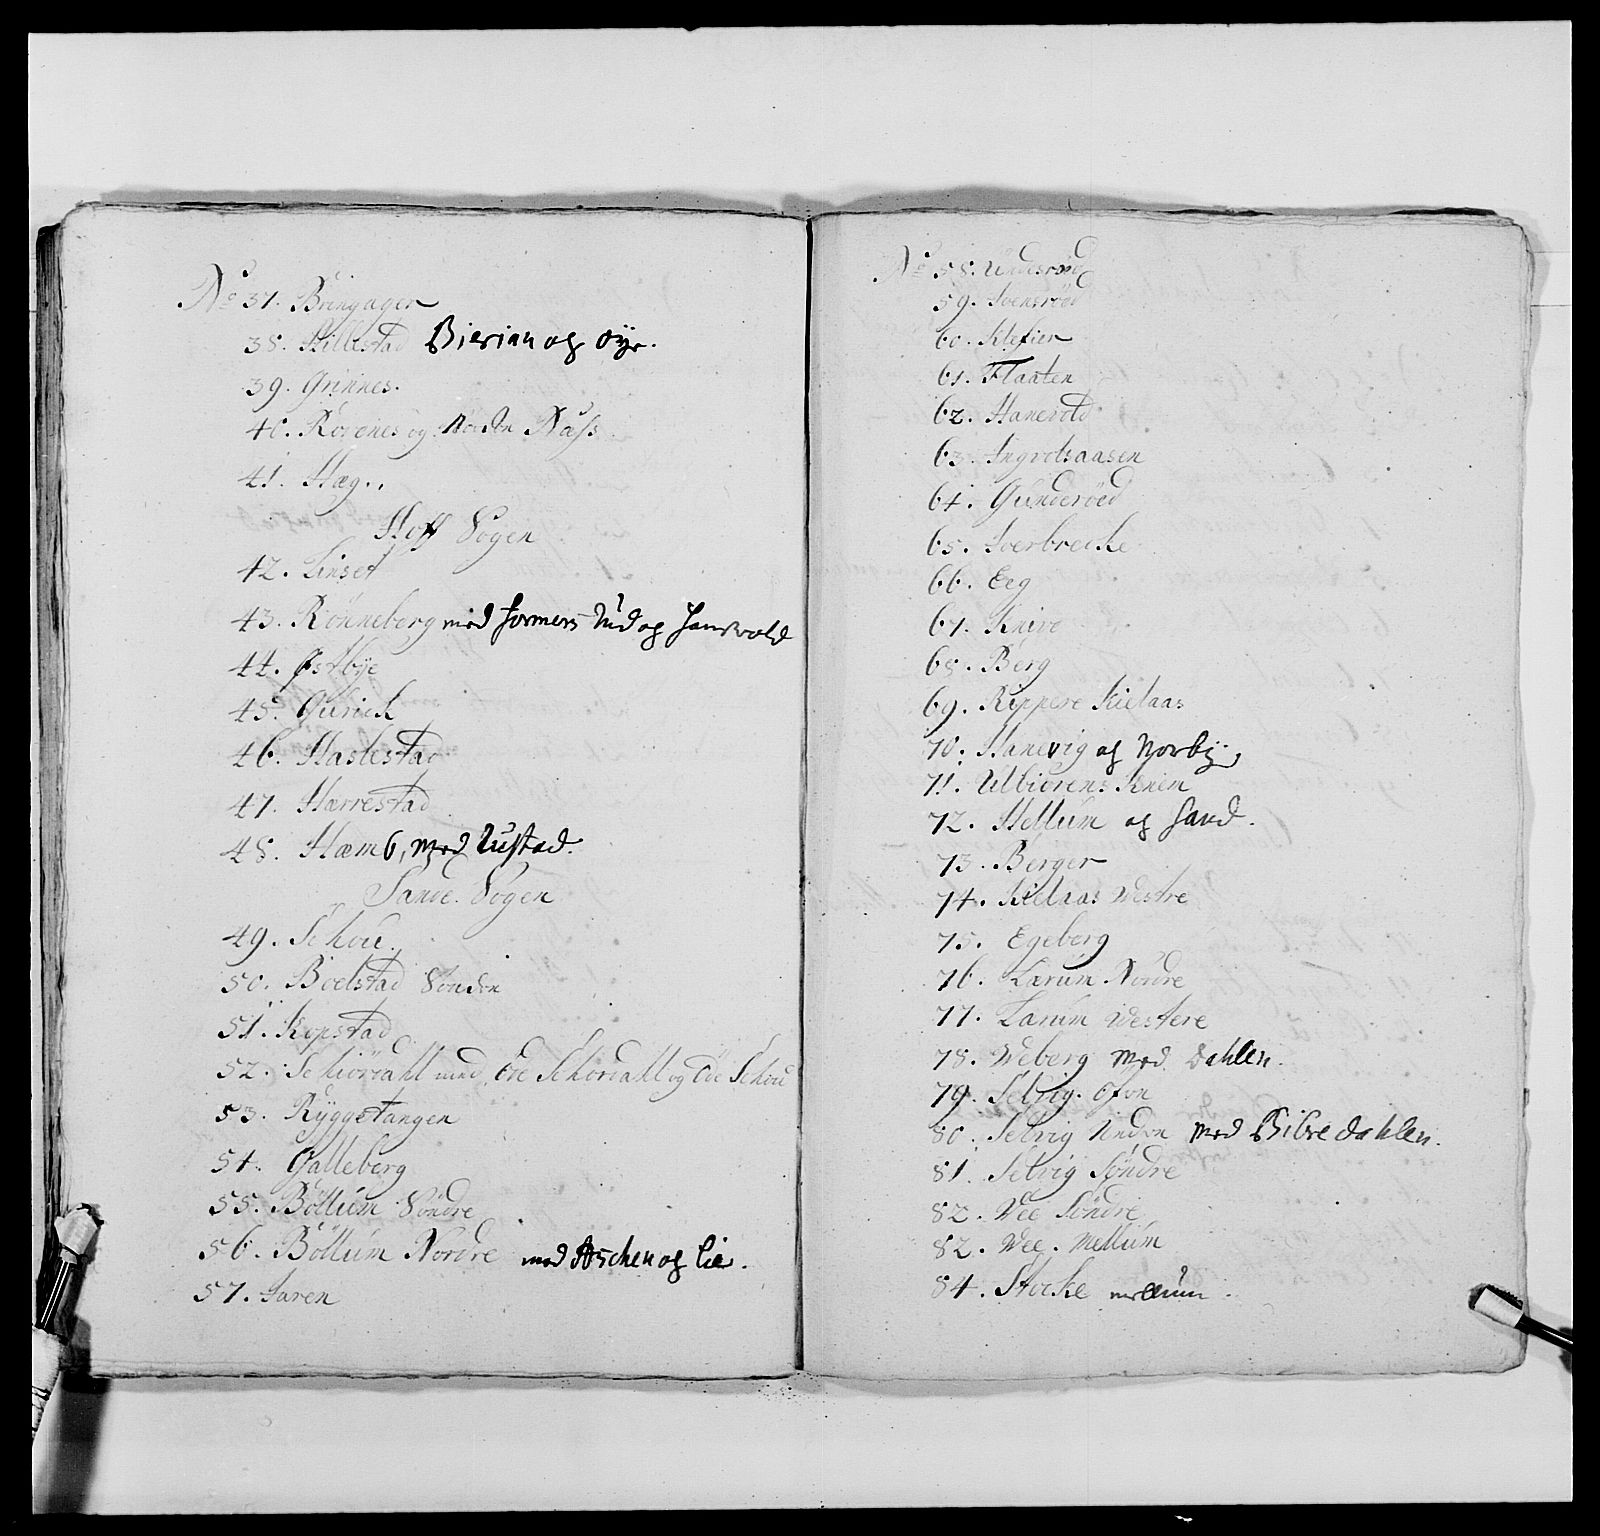 No 37. Bringager
38. Hillestad Bierian og Øye.
39. Grinnes.
40. Rørenes og Næss
41. Hæg..
Hoff Sogen
42. Linset
43. Rönneberg med og
44. Østbye
45. Gurick
46. Haslestad
47. Harrestad
48. Hæmb, med Rustad.
Sande Sogen
49. Schou.
50. Boelstad Sönden
51. Kopstad
52. Schiördahl med Øde Schordahl og Øde Schou
53. Ryggetangen
54. Galleberg
55. Böllum Söndre
56. Böllum Nordre med Aschen og Lie.
57. Jaren
No 58. Undesrød
59. Svensröd
60. Klefier
61. Flaaten
62. Hanevold
63. Ingvolsaasen
64. Gunderöed
65. Sverbrecke
66. Eeg
67. Knive
68. Berg
69. Rippere Kielaas
70. Hanevig og Norby
71. Ulbiörens Knem
72. Hellum og Sand.
73. Berger
74. Kielaas Westre
75. Egeberg
76. Larum Nordre
77. Larum Westere
78. Weberg med Dahlen.
79. Selvig Øfvn
80. Selvig Neden med Bibredahlen.
81. Selvig Söndre
82. Vee Söndre
82. Vee. Mellum
84. Stocke mellum.